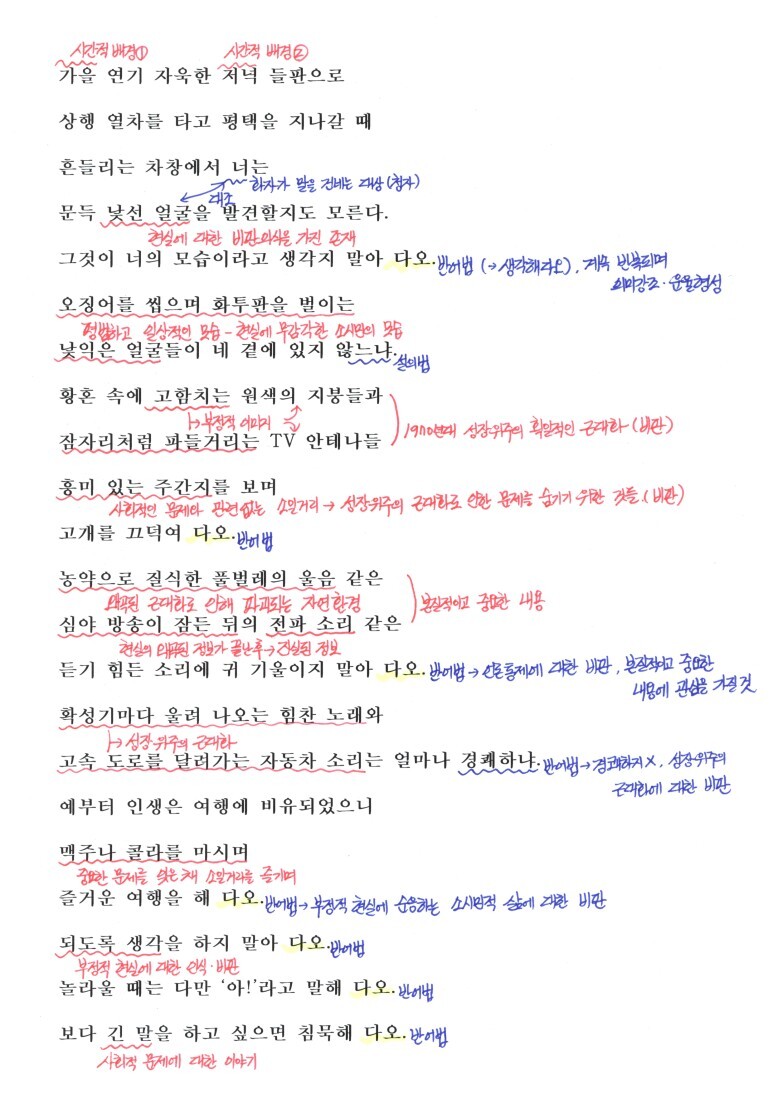 시간적 배경① 시간적 배경②
가을 연기 자욱한 저녁 들판으로
상행 열차를 타고 평택을 지나갈 때
흔들리는 차창에서 너는
화자가 말을 건네는 대상(청자)
대조
문득 낯선 얼굴을 발견할지도 모른다.
현실에 대한 비판의식을 가진 존재
그것이 너의 모습이라고 생각지 말아 다오. 반어법 (→생각해라오), 계속 반복되며
의미강조·운율형성
오징어를 씹으며 화투판을 벌이는
평범하고 일상적인 모습 - 현실에 무감각한 소시민의 모습
낯익은 얼굴들이 네 곁에 있지 않느냐. 설의법
황혼 속에 고함치는 원색의 지붕들과
↳부정적 이미지
1970년대 성장위주의 획일적인 근대화 (비판)
잠자리처럼 파들거리는 TV 안테나들
흥미 있는 주간지를 보며
사회적인 문제와 관련없는 소일거리 → 성장위주의 근대화로 인한 문제를 숨기기 위한 것들 (비판)
고개를 끄덕여 다오. 반어법
농약으로 질식한 풀벌레의 울음 같은
왜곡된 근대화로 인해 파괴되는 자연환경
본질적이고 중요한 내용
심야 방송이 잠든 뒤의 전파 소리 같은
현실의 왜곡된 정보가 끝난후→진실된 정보
듣기 힘든 소리에 귀 기울이지 말아 다오. 반어법→언론통제에 대한 비판, 본질적이고 중요한
내용에 관심을 가질 것
확성기마다 울려 나오는 힘찬 노래와
↳성장위주의 근대화
고속 도로를 달려가는 자동차 소리는 얼마나 경쾌하냐. 반어법→경쾌하지X, 성장위주의
근대화에 대한 비판
예부터 인생은 여행에 비유되었으니
맥주나 콜라를 마시며
중요한 문제를 잊은채 소일거리를 즐기며
즐거운 여행을 해 다오. 반어법→부정적 현실에 순응하는 소시민적 삶에 대한 비판
되도록 생각을 하지 말아 다오. 반어법
부정적 현실에 대한 인식·비판
놀라울 때는 다만 ‘아!’라고 말해 다오. 반어법
보다 긴 말을 하고 싶으면 침묵해 다오. 반어법
사회적 문제에 대한 이야기